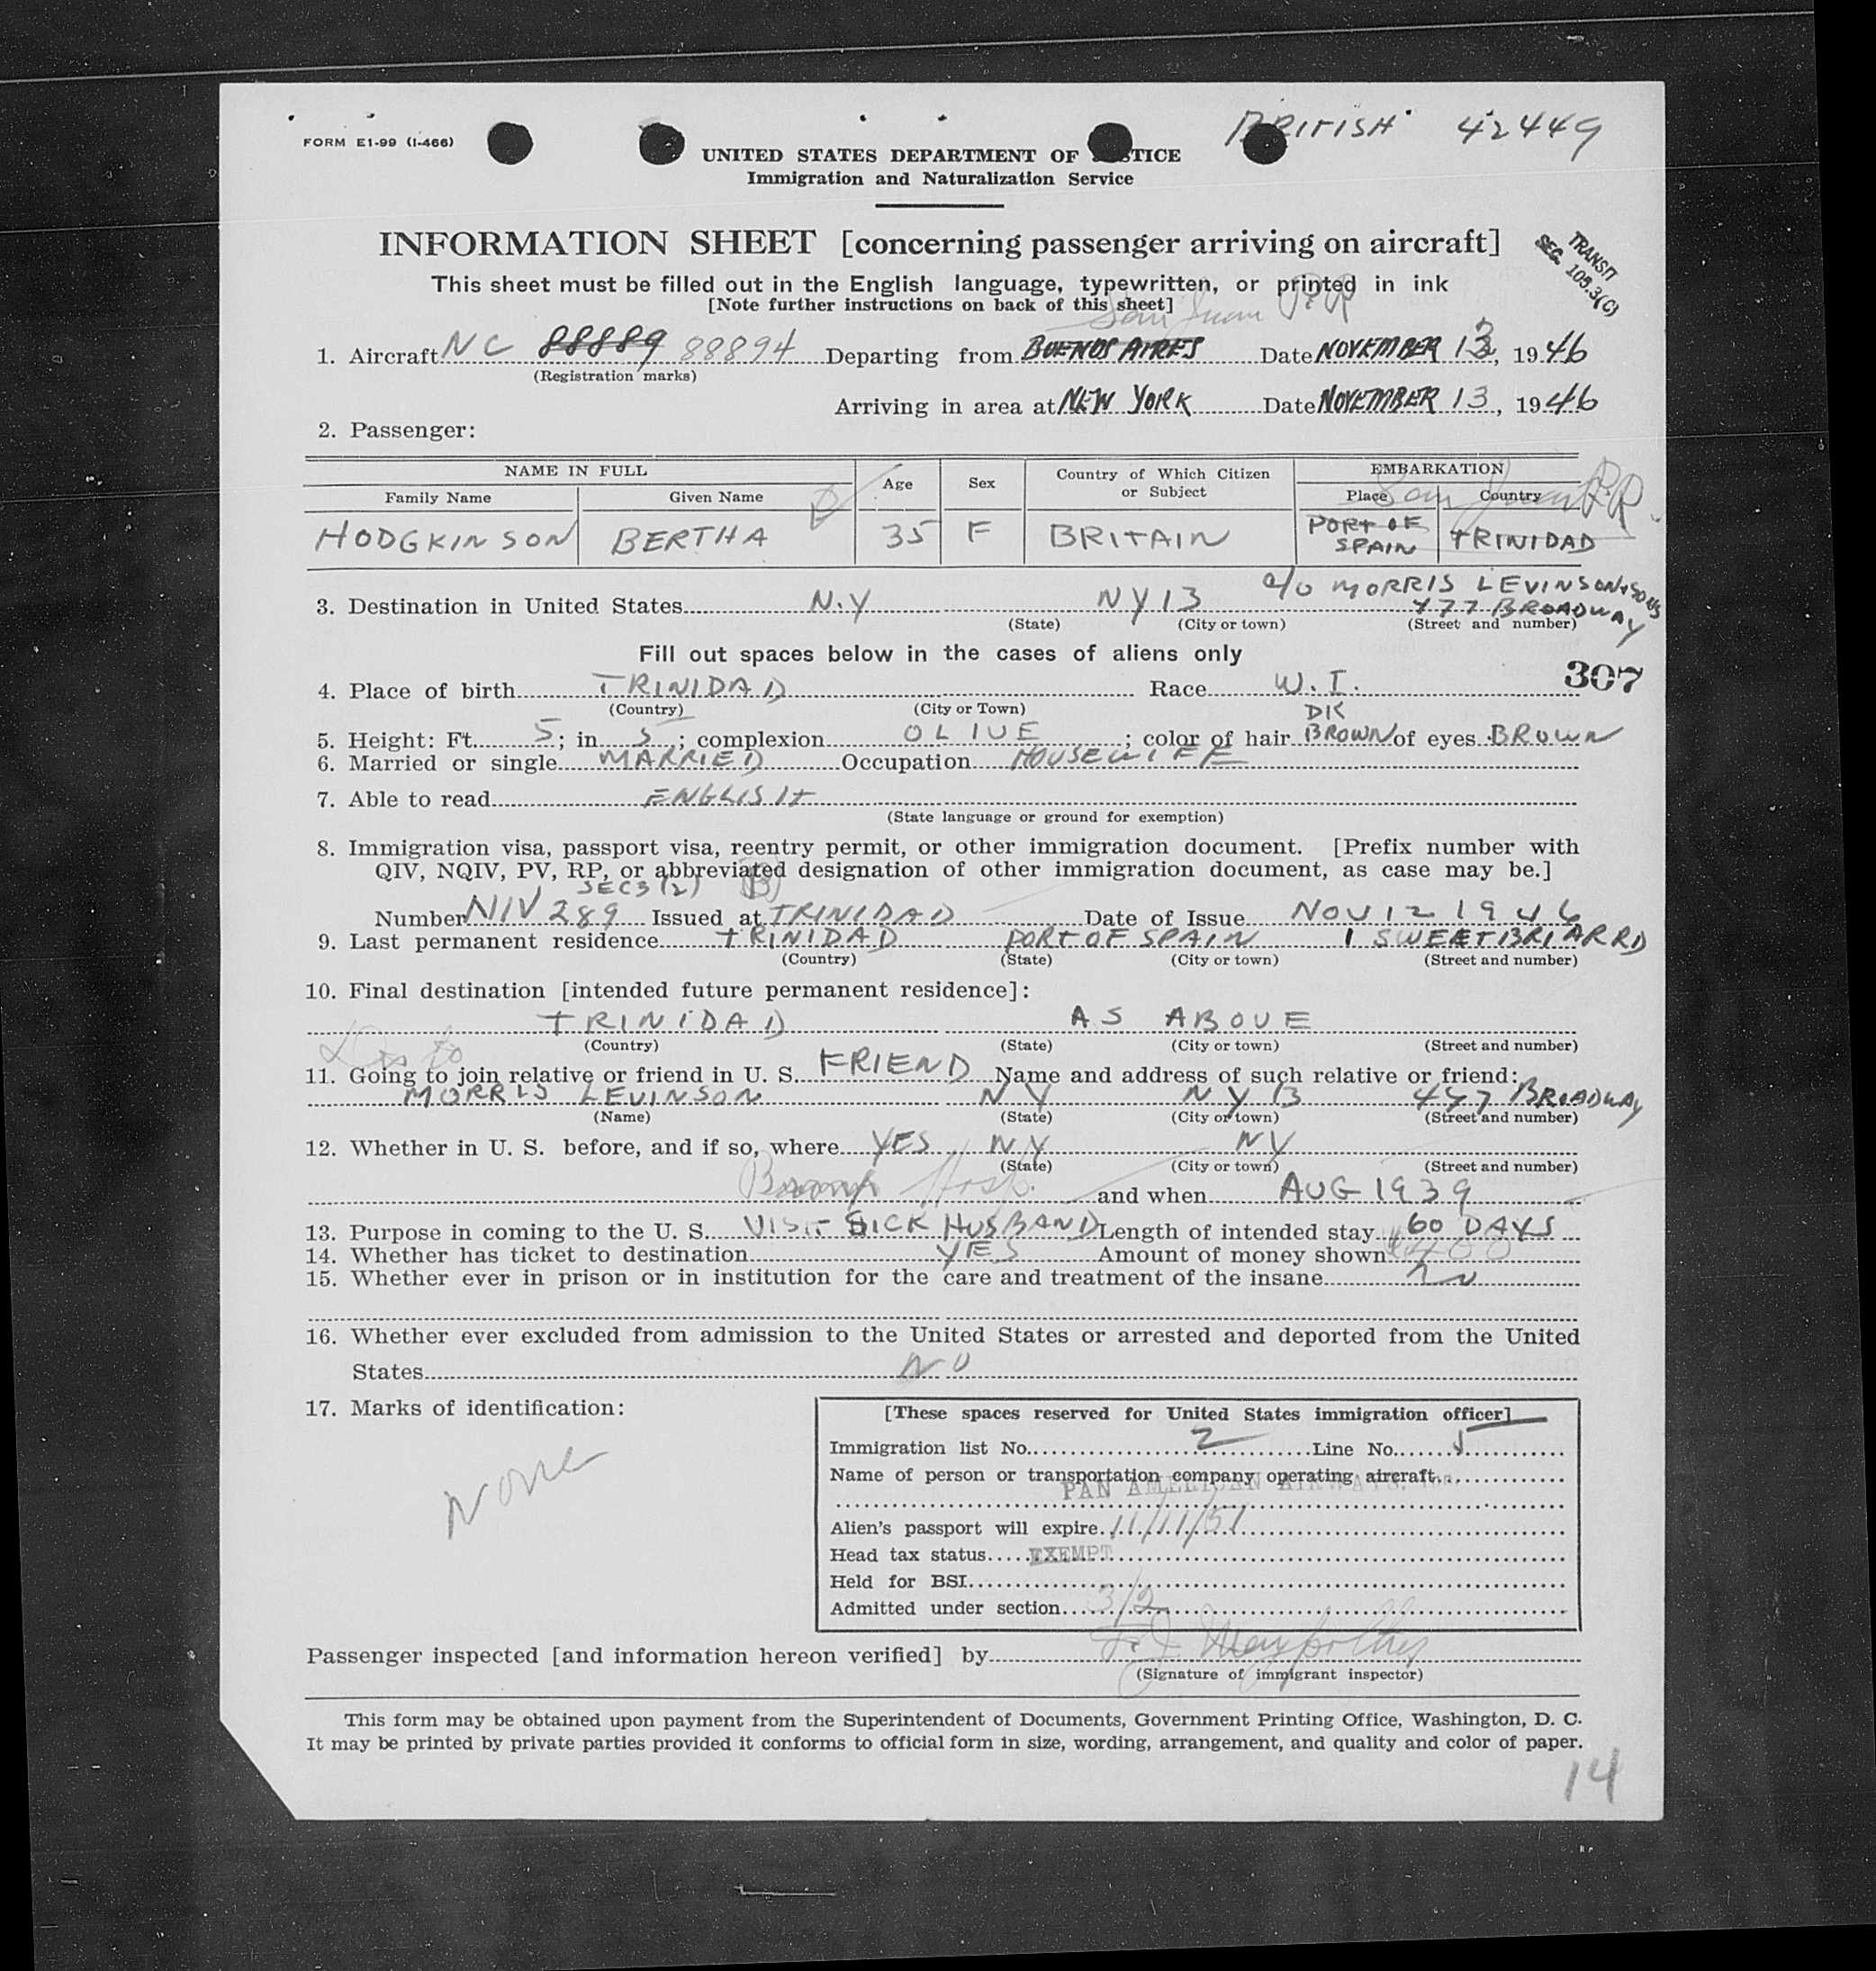 BRITISH 42449
FORM E1-99 (I-466)
UNITED STATES DEPARTMENT OF JUSTICE
Immigration and Naturalization Service
INFORMATION SHEET [concerning passenger arriving on aircraft]
TRANSIT
SEC. 105.3(C)
This sheet must be filled out in the English language, typewritten, or printed in ink
[Note further instructions on back of this sheet]
San Juan P.R
1. Aircraft NC 88889 88894 Departing from BUENOS AIRES Date NOVEMBER 13, 1946
(Registration marks)
Arriving in area at NEW YORK Date NOVEMBER 13, 1946
2. Passenger:
NAME IN FULL Age Sex Country of Which Citizen or Subject EMBARKATION
Family Name Given Name Place Country
San Juan P.R.
HODGKINSON BERTHA 35 F BRITAIN PORT OF SPAIN TRINIDAD
c/o MORRIS LEVINSON & SONS
3. Destination in United States N.Y NY 13 477 BROADWAY
(State) (City or town) (Street and number)
Fill out spaces below in the cases of aliens only
307
4. Place of birth TRINIDAD Race W.I.
(Country) (City or Town)
DK
5. Height: Ft. 5; in 5; complexion OLIVE; color of hair BROWN of eyes BROWN
6. Married or single MARRIED Occupation HOUSEWIFE
7. Able to read ENGLISH
(State language or ground for exemption)
8. Immigration visa, passport visa, reentry permit, or other immigration document. [Prefix number with
QIV, NQIV, PV, RP, or abbreviated designation of other immigration document, as case may be.]
SEC 3 (2) B
Number NIV 289 Issued at TRINIDAD Date of Issue NOV 12 1946
9. Last permanent residence TRINIDAD PORT OF SPAIN 1 SWEET BRIAR RD
(Country) (State) (City or town) (Street and number)
10. Final destination [intended future permanent residence]:
TRINIDAD AS ABOVE
(Country) (State) (City or town) (Street and number)
11. Going to join relative or friend in U. S. FRIEND Name and address of such relative or friend:
MORRIS LEVINSON NY NY 13 477 BROADWAY
(Name) (State) (City or town) (Street and number)
12. Whether in U. S. before, and if so, where YES NY NY
(State) (City or town) (Street and number)
Hosp. and when AUG 1939
13. Purpose in coming to the U. S. VISIT SICK HUSBAND Length of intended stay 60 DAYS
14. Whether has ticket to destination YES Amount of money shown $400
15. Whether ever in prison or in institution for the care and treatment of the insane No
16. Whether ever excluded from admission to the United States or arrested and deported from the United
States NO
17. Marks of identification:
None
[These spaces reserved for United States immigration officer]
Immigration list No. 2 Line No. 1
Name of person or transportation company operating aircraft
PAN AMERICAN AIRWAYS, INC.
Alien's passport will expire 11/11/51
Head tax status EXEMPT
Held for BSI
Admitted under section 3/2
Passenger inspected [and information hereon verified] by
(Signature of immigrant inspector)
This form may be obtained upon payment from the Superintendent of Documents, Government Printing Office, Washington, D. C.
It may be printed by private parties provided it conforms to official form in size, wording, arrangement, and quality and color of paper.
14